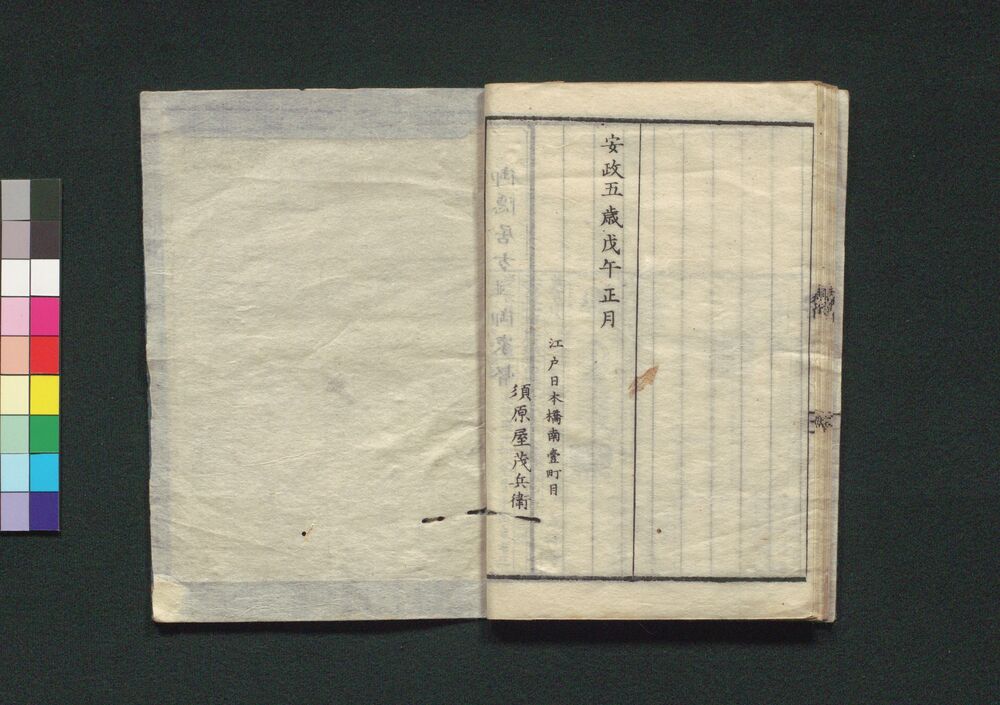 安政五歳戊午正月
江戸日本橋南壹町目
須原屋茂兵衛